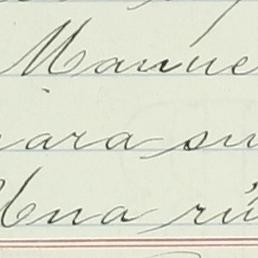 Manue
para su
Una rú